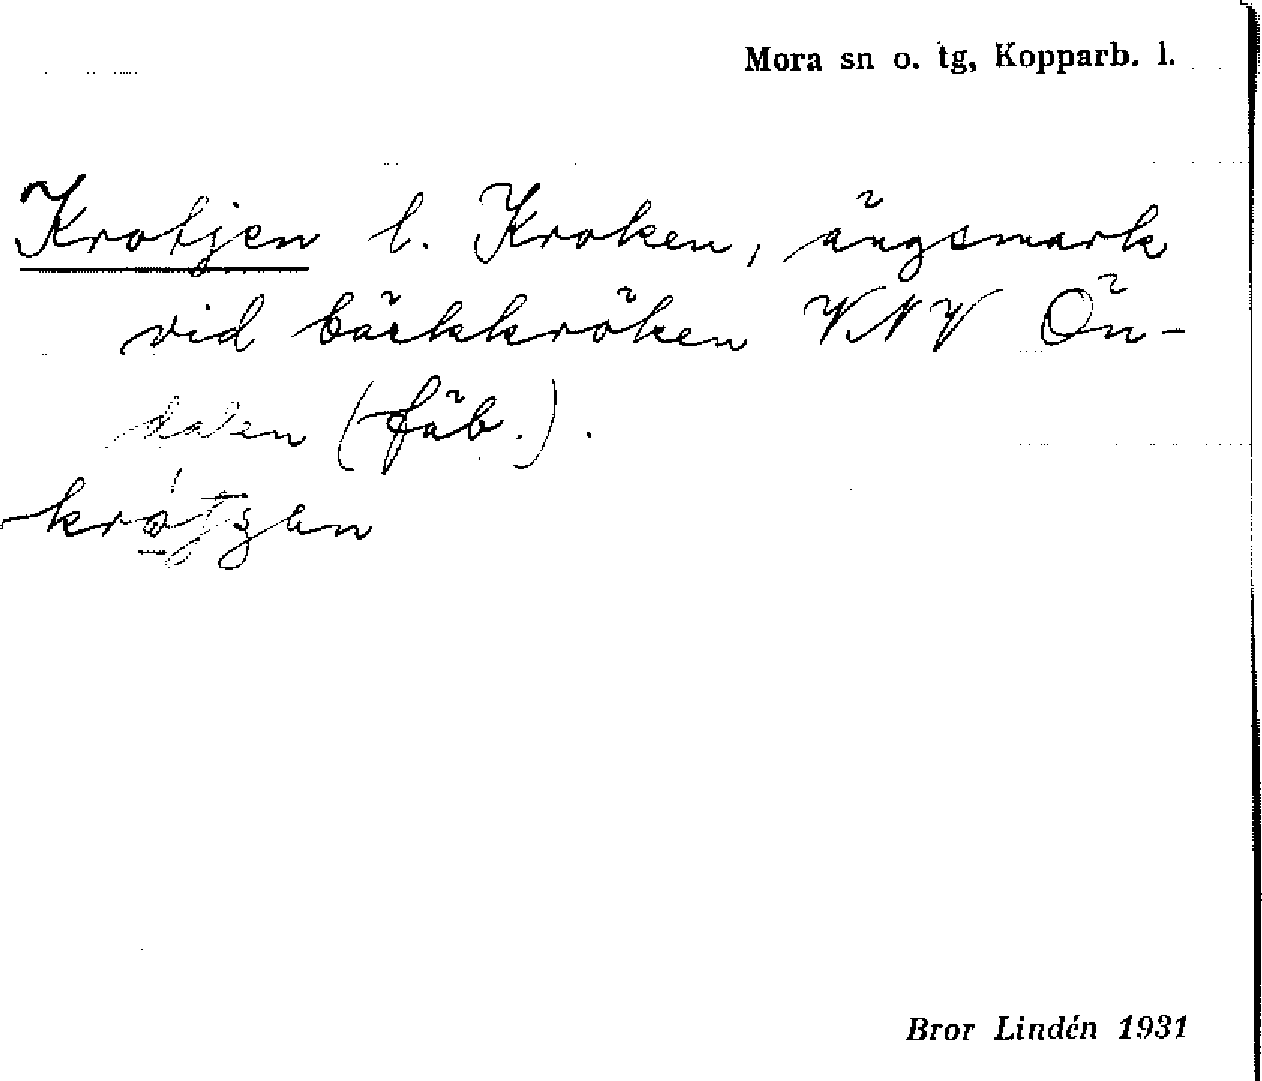 Mora sn o. tg, Kopparb. l.
Krotjen l. Kroken, ängsmark
vid bäckkröken VNV Ön-
dalen (fäb.).
Bror Lindén 1931